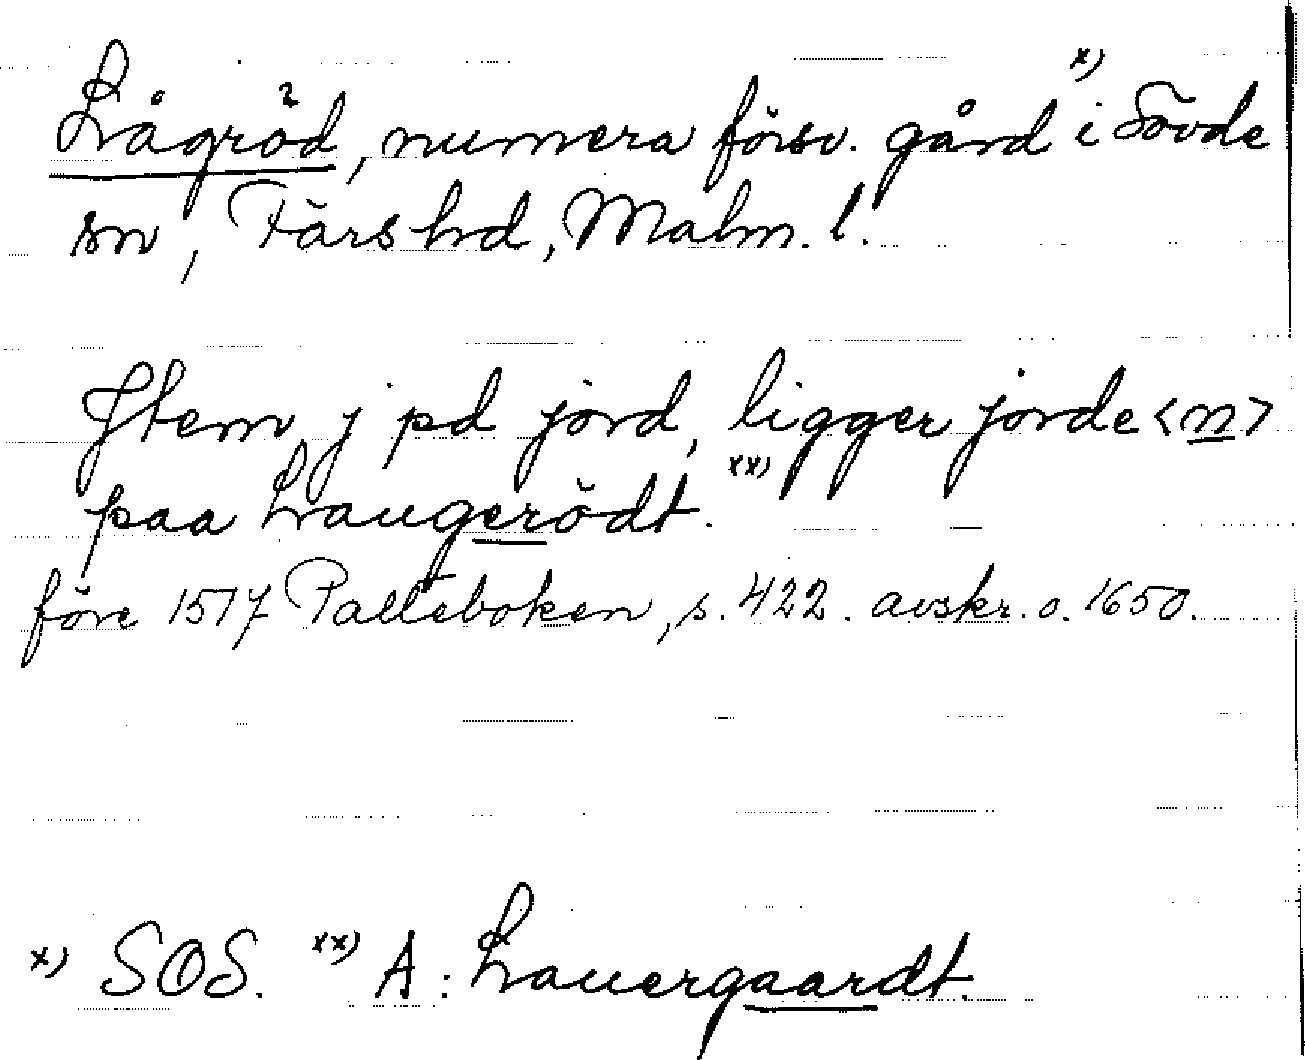 Lågröd, numera försv. gård x) i Sövde
sn, Färs hd, Malm. l.
Item j pd jord, ligger jorde<n>
paa Laugerödt. xx)
före 1517 Palteboken, s. 422. avskr. o. 1650.
x) SOS. xx) A: Lauergaardt.